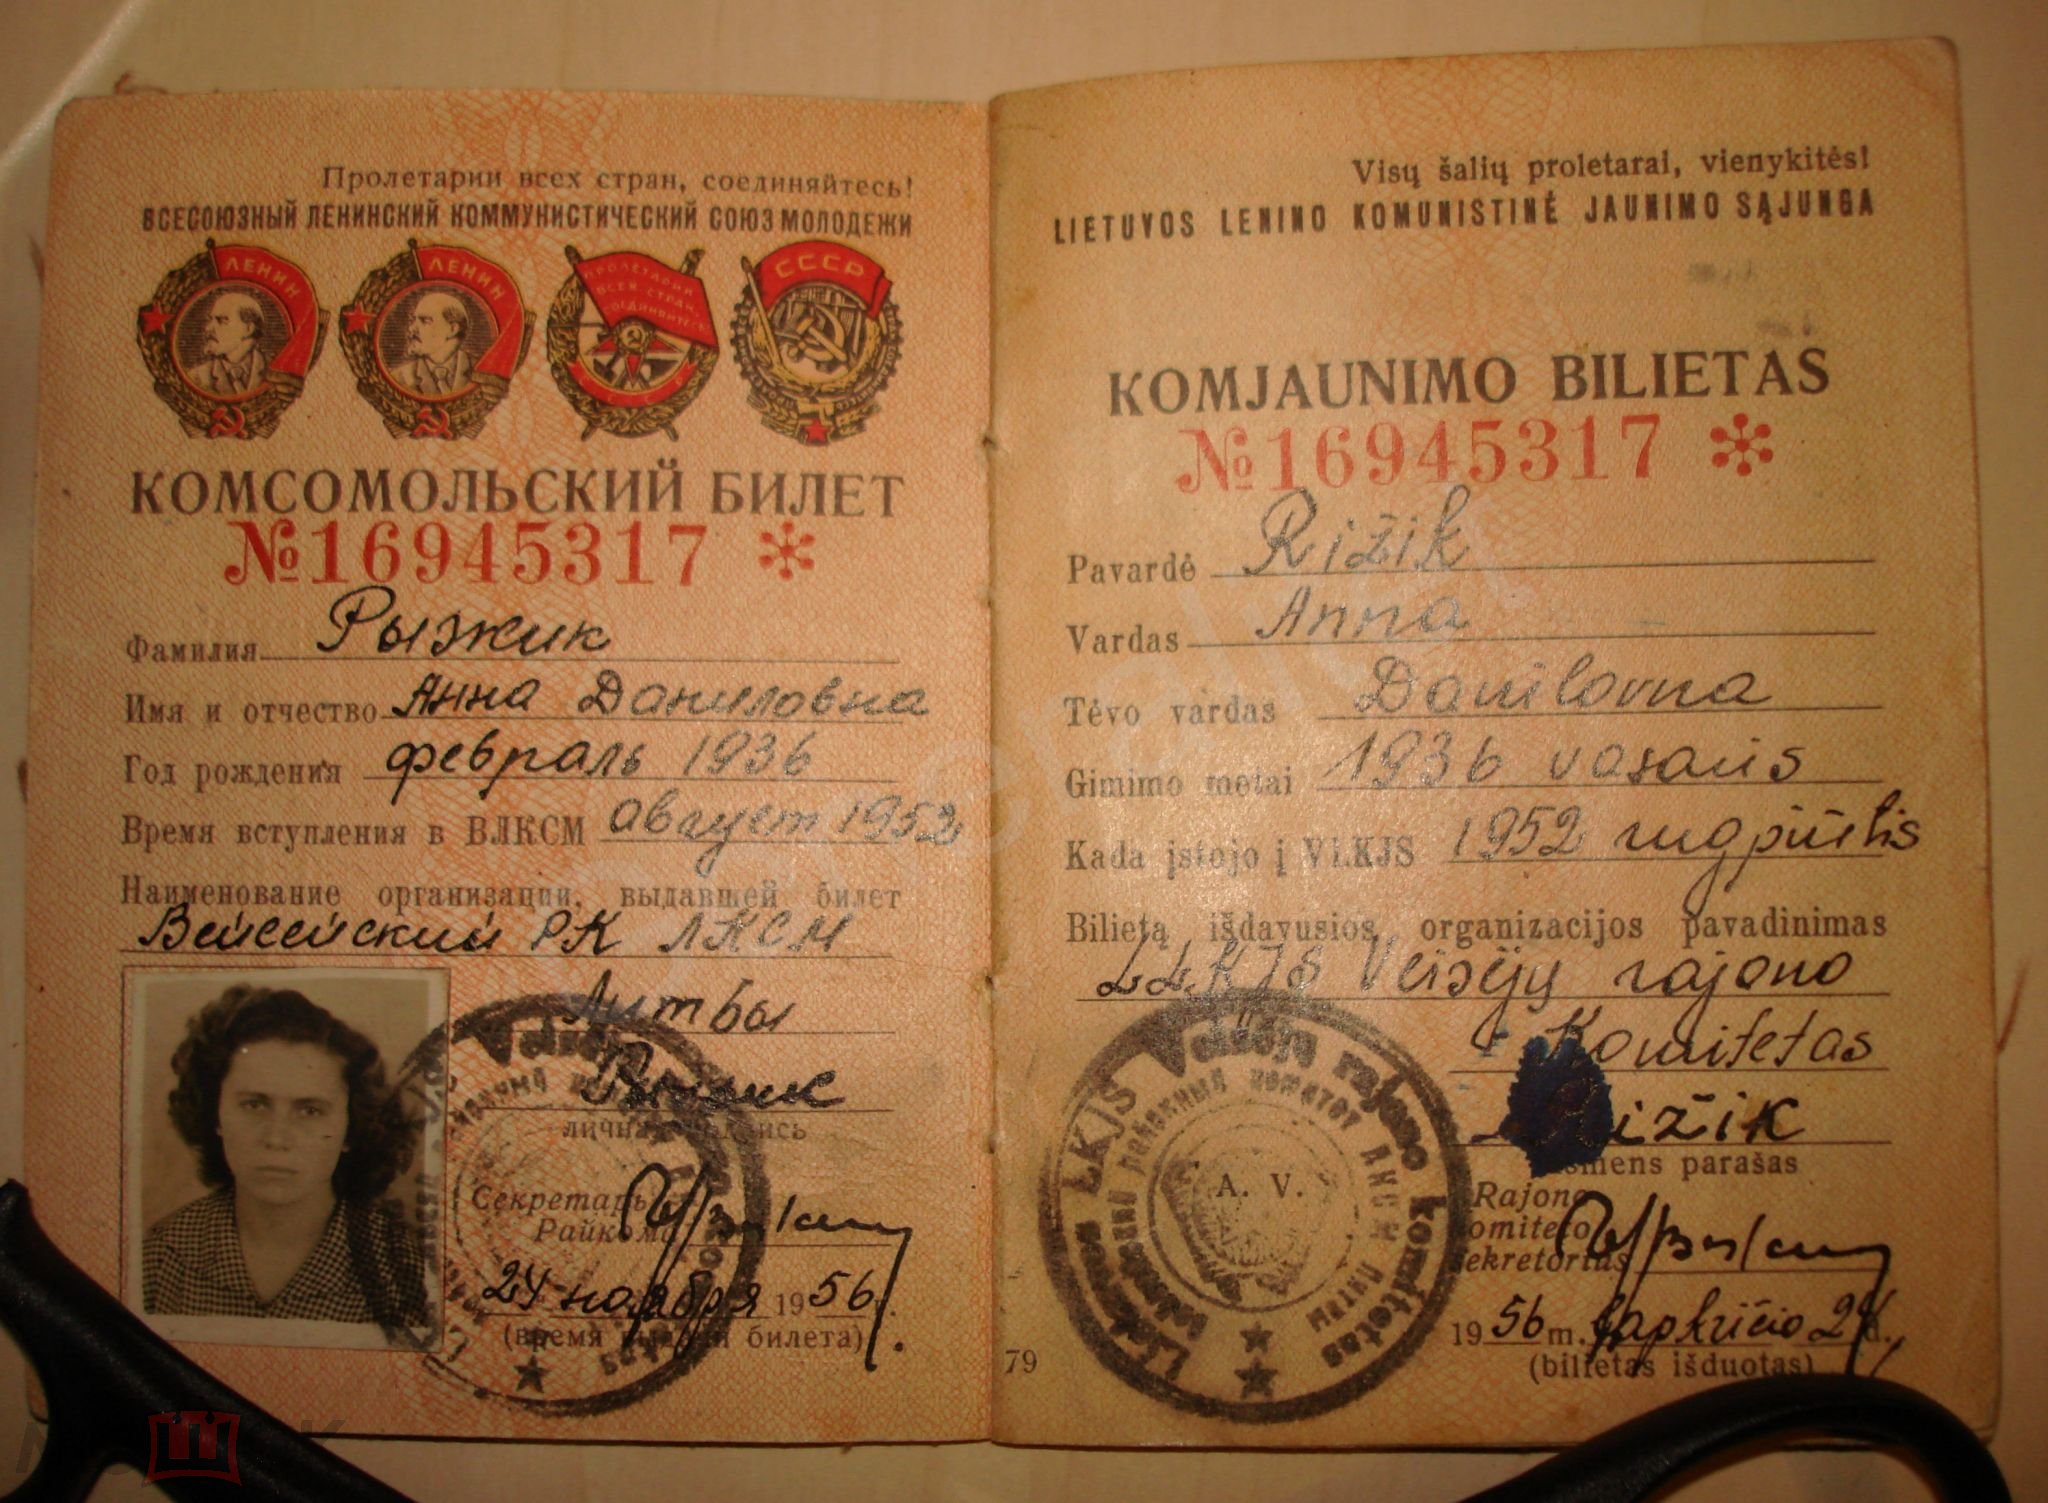 Пролетарии всех стран, соединяйтесь!
ВСЕСОЮЗНЫЙ ЛЕНИНСКИЙ КОММУНИСТИЧЕСКИЙ СОЮЗ МОЛОДЕЖИ
ЛЕНИН
ЛЕНИН
ПРОЛЕТАРИИ ВСЕХ СТРАН, СОЕДИНЯЙТЕСЬ
СССР
СССР
КОМСОМОЛЬСКИЙ БИЛЕТ
№16945317
Фамилия Рыжик
Имя и отчество Анна Даниловна
Год рождения февраль 1936
Время вступления в ВЛКСМ август 1952
Наименование организации, выдавшей билет
Вейсейский РК ЛКСМ
Литвы
Рыжик
личная подпись
Секретарь
Райкома
24 ноября 1956 г.
(время выдачи билета)
Visų šalių proletarai, vienykitės!
LIETUVOS LENINO KOMUNISTINĖ JAUNIMO SĄJUNGA
KOMJAUNIMO BILIETAS
№16945317
Pavardė Rižik
Vardas Anna
Tėvo vardas Danilovna
Gimimo metai 1936 vasaris
Kada įstojo į VLKJS 1952 rugpiūtis
Bilietą išdavusios organizacijos pavadinimas
LLKJS Veisėjų rajono
Komitetas
ižik
smens parašas
Rajono
komiteto
sekretorius
1956 m. lapkričio 24 d.
(bilietas išduotas)
A. V.
Lietuvos LKJS Veisiejų rajono komitetas
районный комитет ЛКСМ Литвы
79